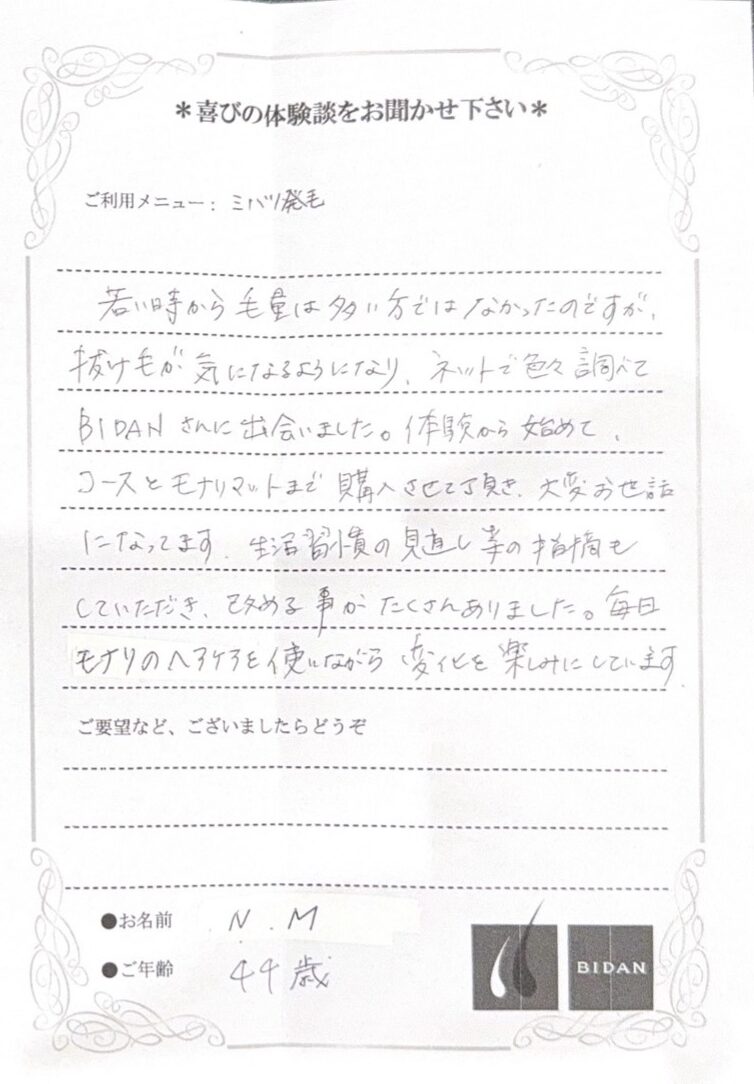 ＊喜びの体験談をお聞かせ下さい＊
ご利用メニュー：ミバツ発毛
若い時から毛量は多い方ではなかったのですが、
抜け毛が気になるようになり、ネットで色々調べて
BIDANさんに出会いました。体験から始めて、
コースとモナリマットまで購入させて頂き、大変お世話
になってます。生活習慣の見直し等の指摘も
していただき、改める事がたくさんありました。毎日
モナリのヘアケアを使いながら変化を楽しみにしています。
ご要望など、ございましたらどうぞ
●お名前 N.M
●ご年齢 44歳
BIDAN